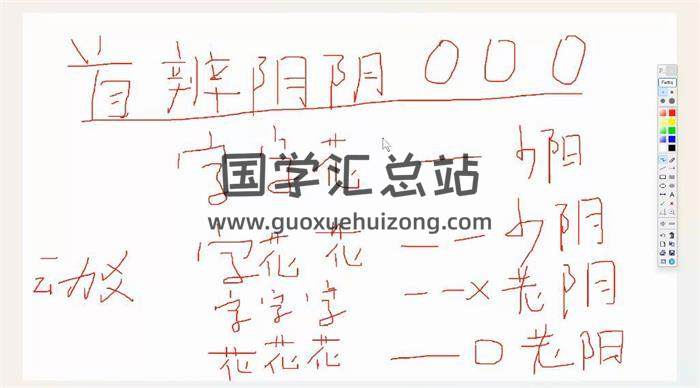 首辨阴阴 O O O
字字花 — 少阳
国学汇总站
www.guoxuehuizong.com
字花花 -- 少阴
动爻 字字字 --x 老阴
花花花 —O 老阳